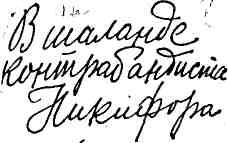 В шаланде
контрабандиста
Никифора